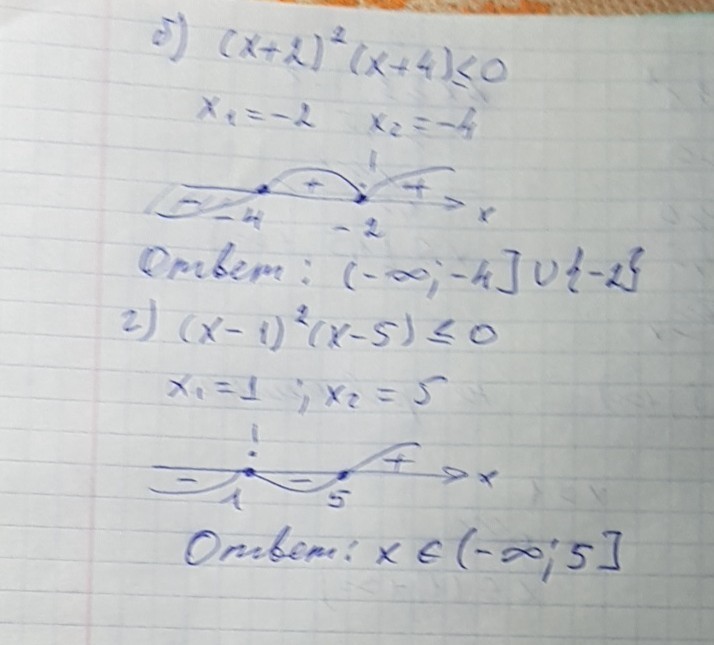 б) (x+2)²(x+4)≤0
x₁=-2 x₂=-4
!
- + + x
-4 -2
Ответ: (-∞;-4]∪{-2}
г) (x-1)²(x-5)≤0
x₁=1 ; x₂=5
!
- - + x
1 5
Ответ: x∈(-∞;5]